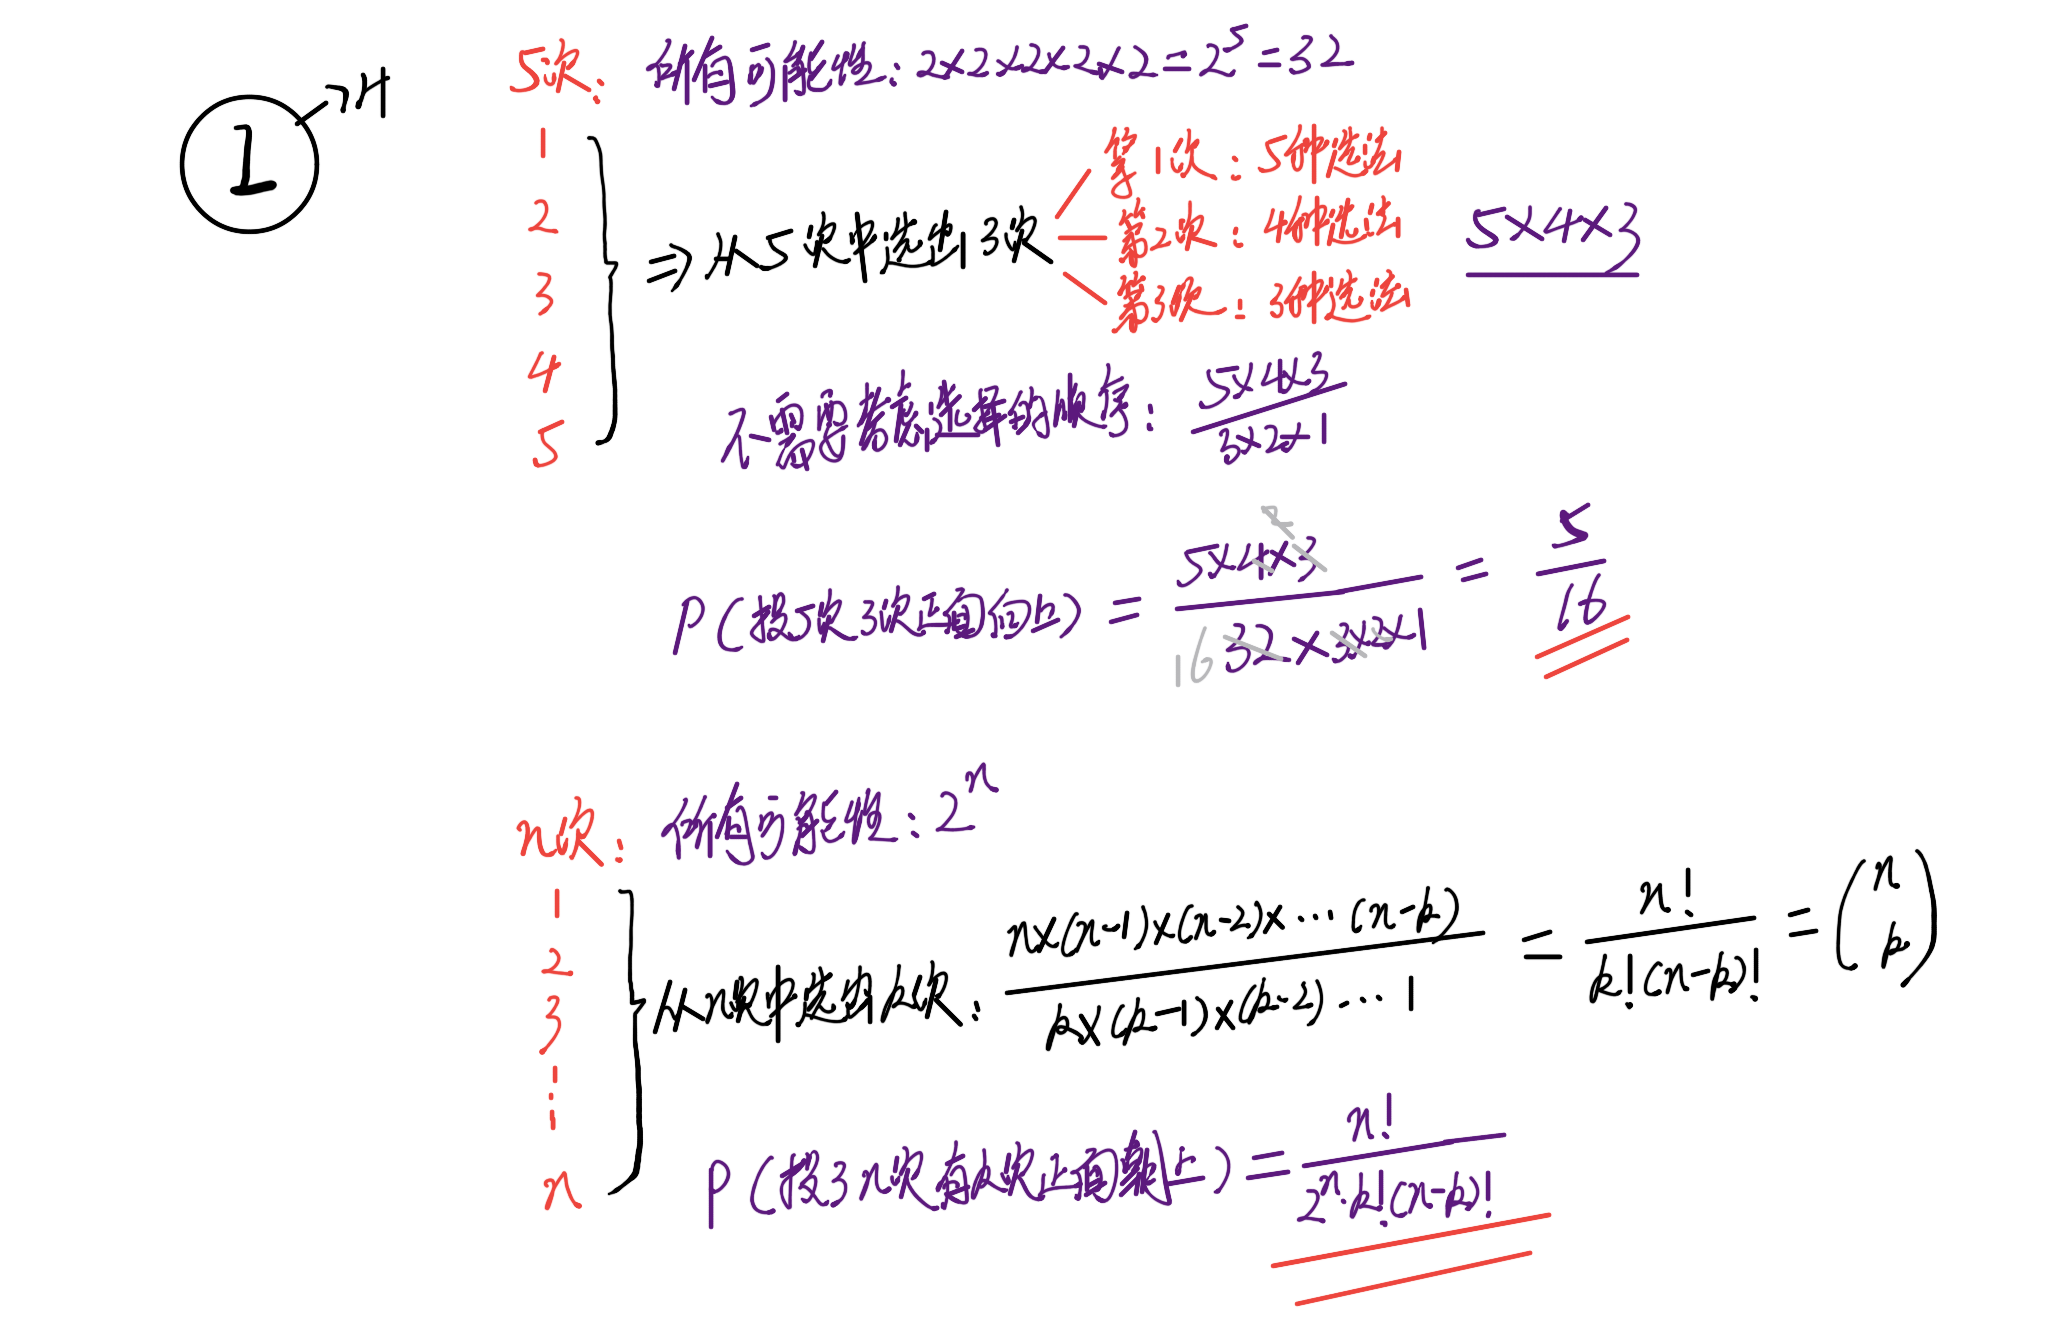 1 → H
5次: 所有可能性: 2×2×2×2×2=2^5=32
1
2
3
4
5
⇒ 从5次中选出3次
第1次: 5种选法
第2次: 4种选法
第3次: 3种选法
5×4×3
不需要考虑选择的顺序: (5×4×3)/(3×2×1)
P(投5次3次正面向上) = (5×4×3)/(32×3×2×1) = 5/16
2
16
n次: 所有可能性: 2^n
1
2
3
⋮
n
从n次中选出k次: (n×(n-1)×(n-2)×…(n-k))/(k×(k-1)×(k-2)…1) = n!/(k!(n-k)!) = (n k)
P(投3n次有k次正面朝上) = n!/(2^n·k!(n-k)!)